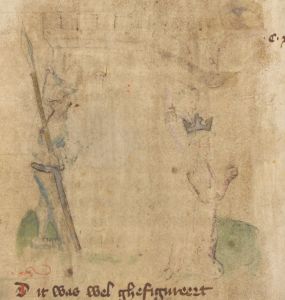 ·C·
D it was wel ghefigureert